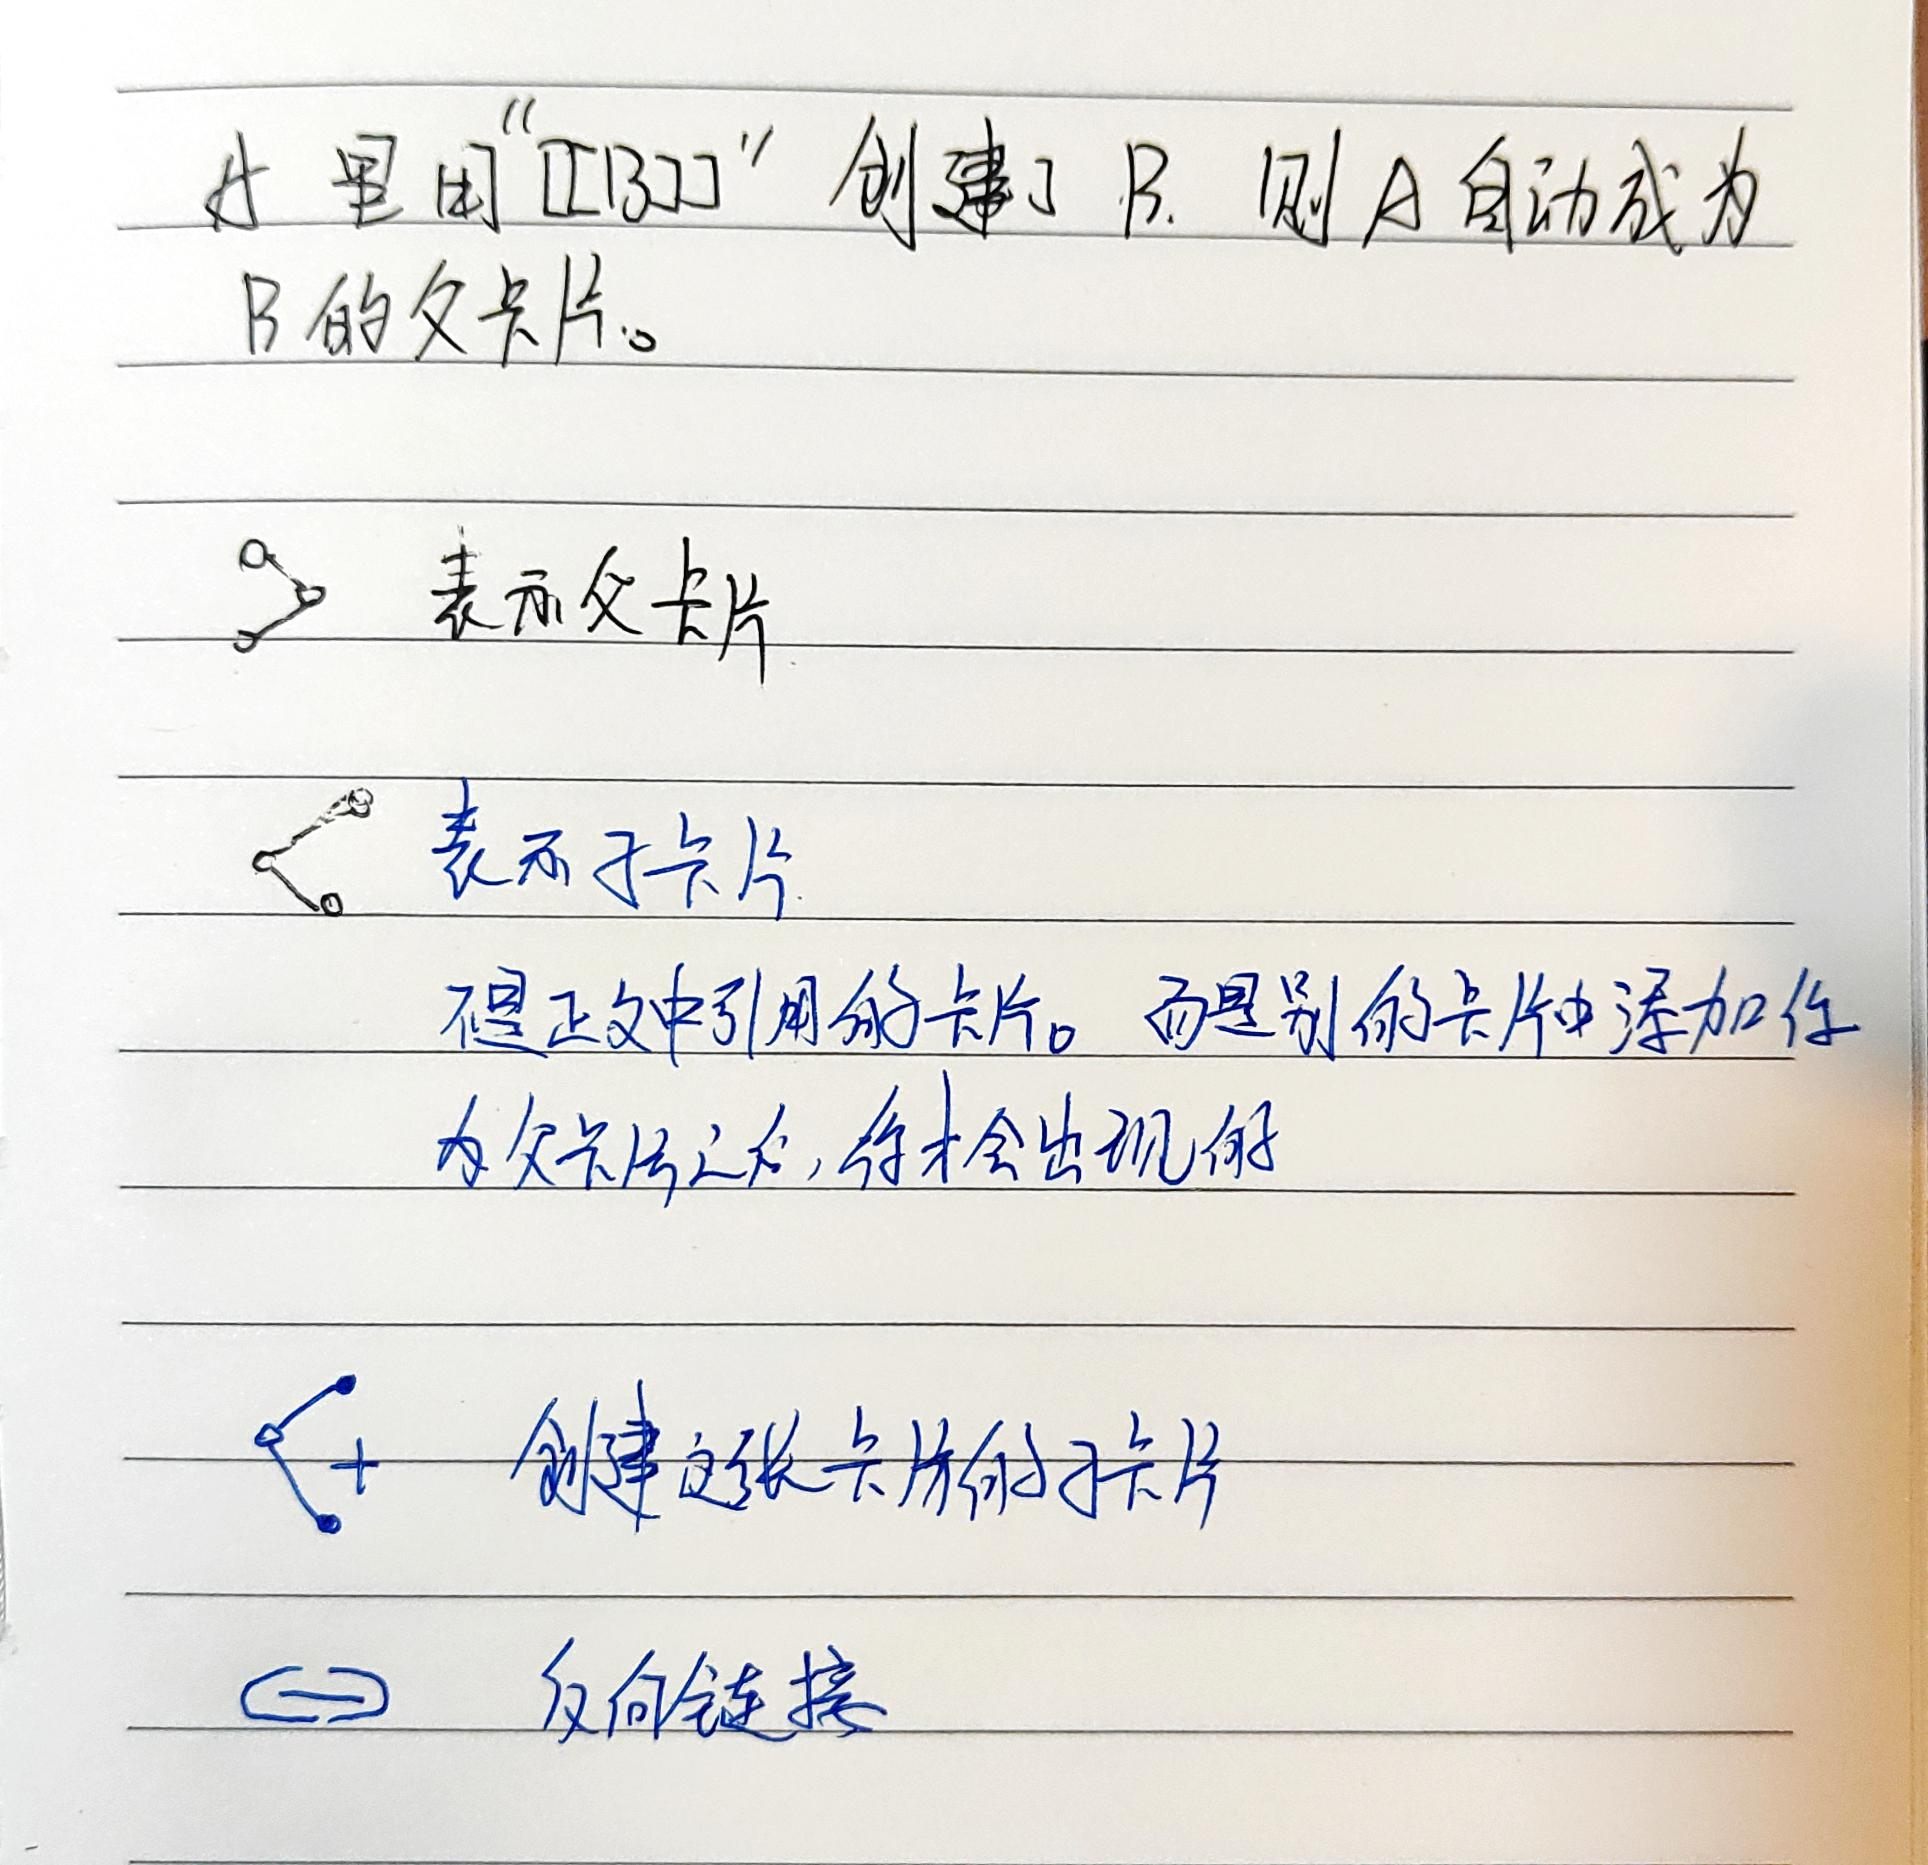 A里用“[[B]]”创建了B.则A自动成为
B的父卡片。
表示父卡片
表示子卡片.
不是正文中引用的卡片。而是别的卡片中添加你
为父卡片之后,你才会出现的
创建这张卡片的子卡片
反向链接